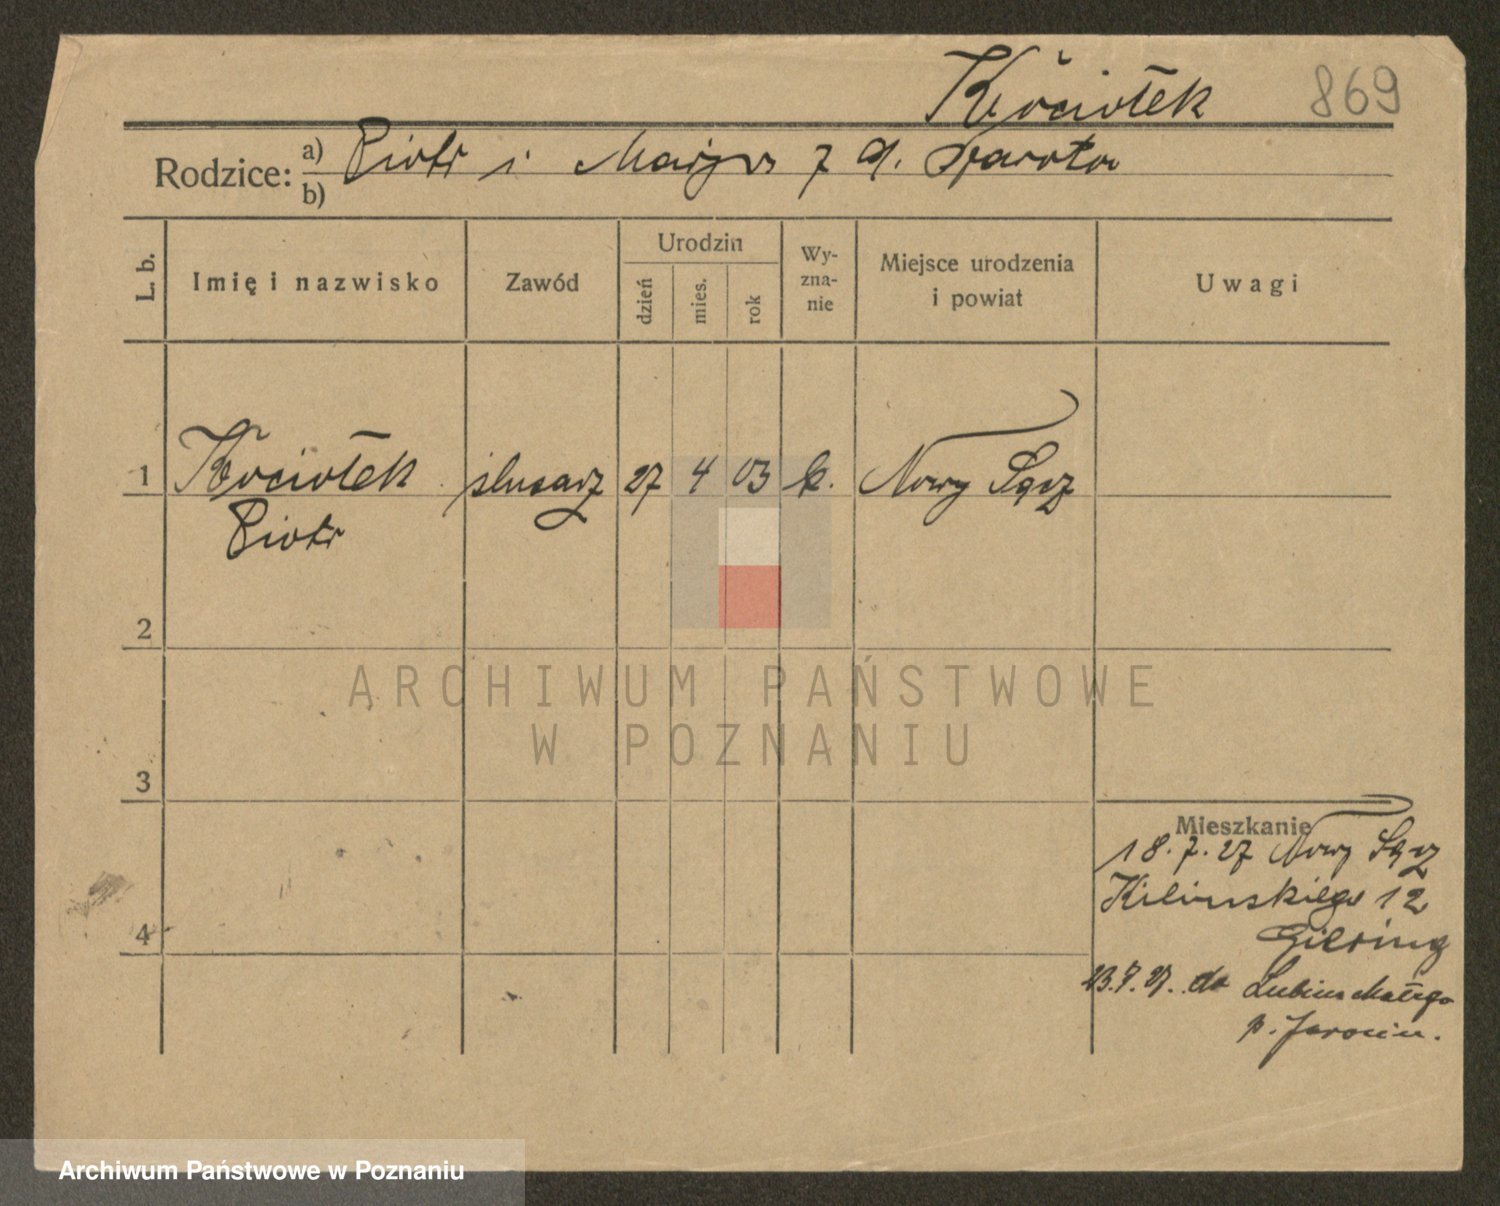 Kociołek 869
Rodzice: a) Piotr i Marja z d.
b)
L. b. Imię i nazwisko Zawód Urodzin dzień mies. rok Wy-zna-nie Miejsce urodzenia i powiat Uwagi
1 Kociołek ślusarz 27 4 03 k. Nowy Sącz
Piotr
2
ARCHIWUM PAŃSTWOWE
W POZNANIU
3
Mieszkanie
18.7.27 Nowy Sącz
Kilinskiego 12
4
do Lubinia Małego
p. Jarocin.
Archiwum Państwowe w Poznaniu